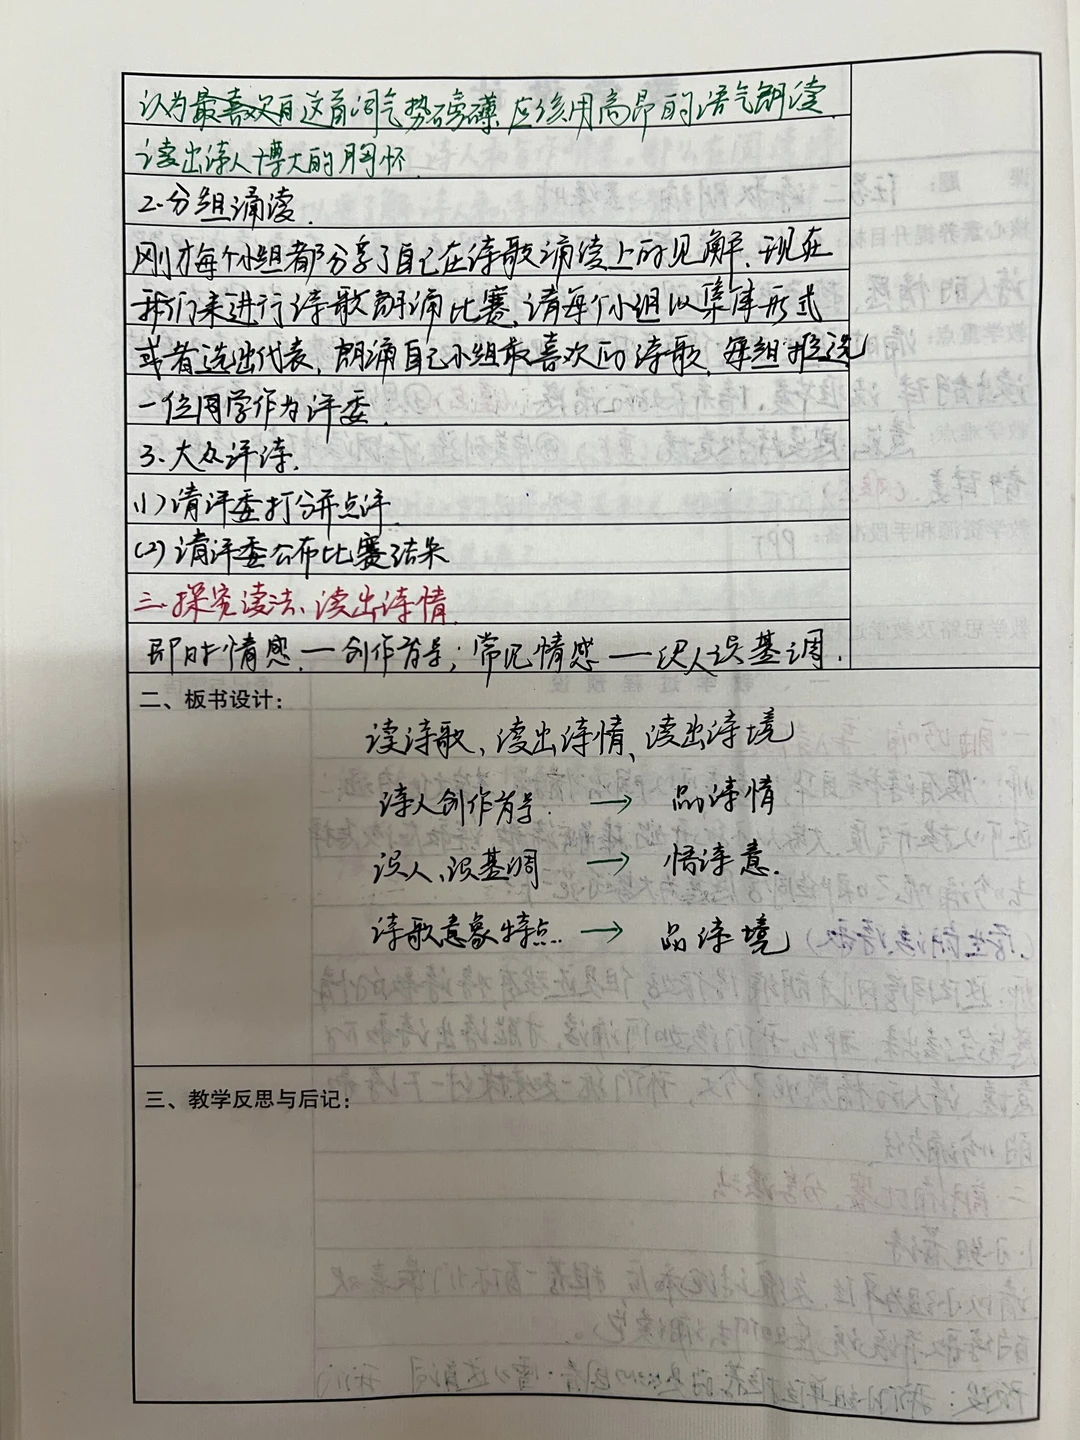 认为最喜欢的这首词气势磅礴,应该用高昂的语气朗读,
读出诗人博大的胸怀.
2.分组诵读.
刚才每个小组都分享了自己在诗歌诵读上的见解,现在
我们来进行诗歌朗诵比赛,请每个小组以集体形式
或者选出代表,朗诵自己小组最喜欢的诗歌,每组推选
一位同学作为评委.
3.大众评诗.
(1)请评委打分并点评.
(2)请评委公布比赛结果
三.探究读法、读出诗情.
即时情感.—创作背景;常见情感—识人识基调.
二、板书设计:
读诗歌、读出诗情、读出诗境
诗人创作背景. → 品诗情
识人、识基调 → 悟诗意.
诗歌意象特点.. → 品诗境
三、教学反思与后记: